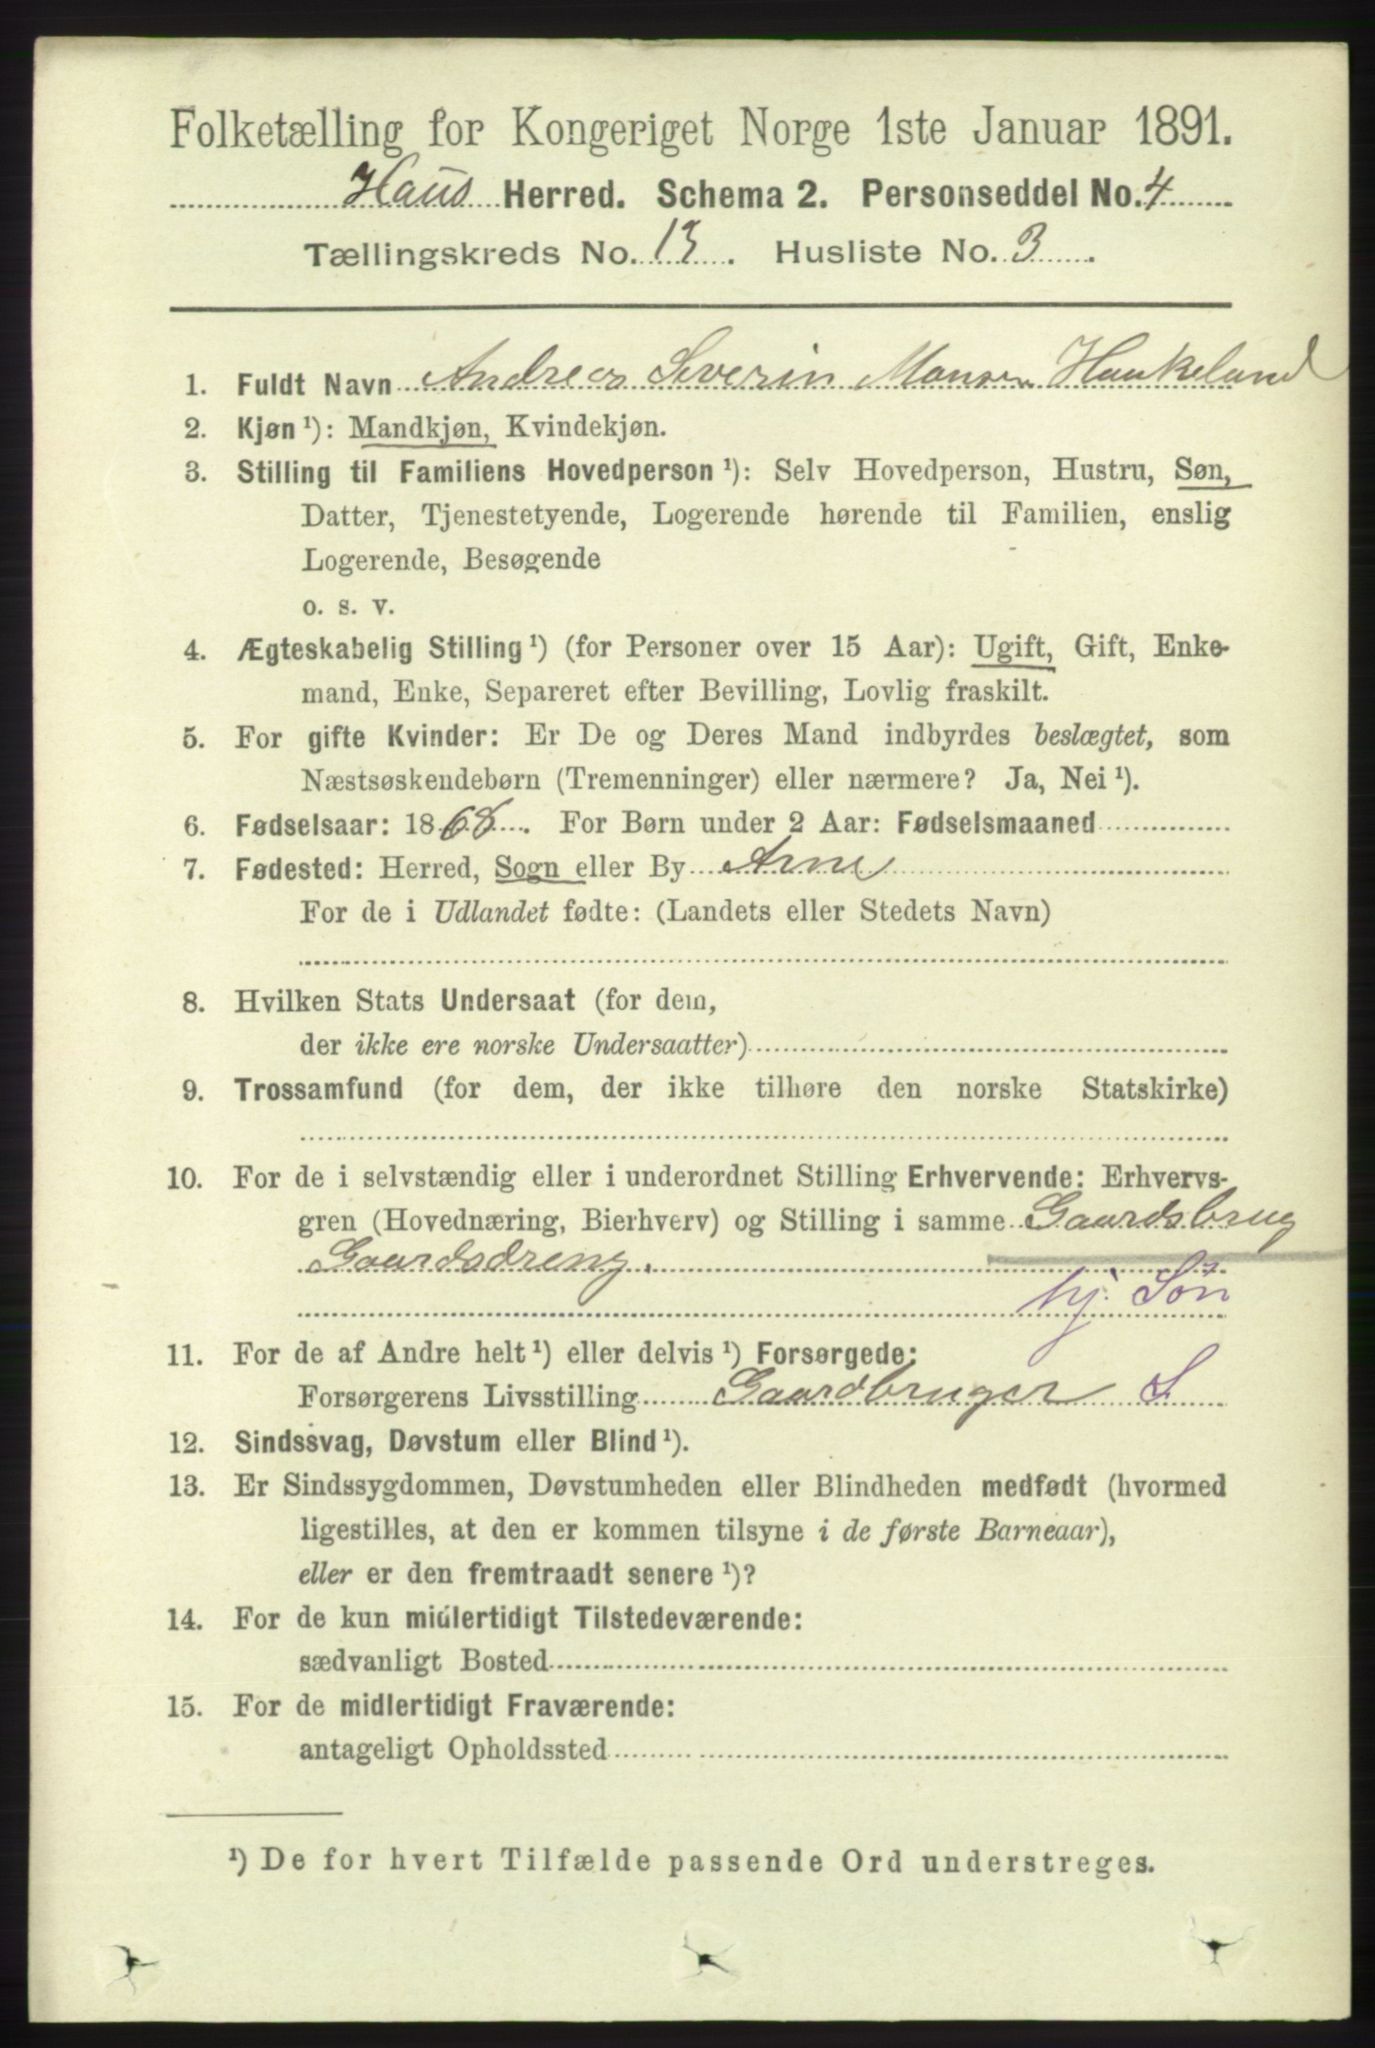 Folketælling for Kongeriget Norge 1ste Januar 1891.
Haus Herred. Schema 2. Personseddel No. 4
Tællingskreds No. 13. Husliste No. 3.
1. Fuldt Navn Andreas Severin Monsen Haukeland
2. Kjøn ¹): Mandkjøn, Kvindekjøn.
3. Stilling til Familiens Hovedperson ¹): Selv Hovedperson, Hustru, Søn,
Datter, Tjenestetyende, Logerende hørende til Familien, enslig
Logerende, Besøgende
o. s. v.
4. Ægteskabelig Stilling ¹) (for Personer over 15 Aar): Ugift, Gift, Enke-
mand, Enke, Separeret efter Bevilling, Lovlig fraskilt.
5. For gifte Kvinder: Er De og Deres Mand indbyrdes beslægtet, som
Næstsøskendebørn (Tremenninger) eller nærmere? Ja, Nei ¹).
6. Fødselsaar: 1868. For Børn under 2 Aar: Fødselsmaaned
7. Fødested: Herred, Sogn eller By Arne
For de i Udlandet fødte: (Landets eller Stedets Navn)
8. Hvilken Stats Undersaat (for dem,
der ikke ere norske Undersaatter)
9. Trossamfund (for dem, der ikke tilhøre den norske Statskirke)
10. For de i selvstændig eller i underordnet Stilling Erhvervende: Erhvervs-
gren (Hovednæring, Bierhverv) og Stilling i samme Gaardsbrug
Gaardsdreng.
hj. Søn
11. For de af Andre helt ¹) eller delvis ¹) Forsørgede:
Forsørgerens Livsstilling Gaardbruger S
12. Sindssvag, Døvstum eller Blind ¹).
13. Er Sindssygdommen, Døvstumheden eller Blindheden medfødt (hvormed
ligestilles, at den er kommen tilsyne i de første Barneaar),
eller er den fremtraadt senere ¹)?
14. For de kun midlertidigt Tilstedeværende:
sædvanligt Bosted
15. For de midlertidigt Fraværende:
antageligt Opholdssted
¹) De for hvert Tilfælde passende Ord understreges.